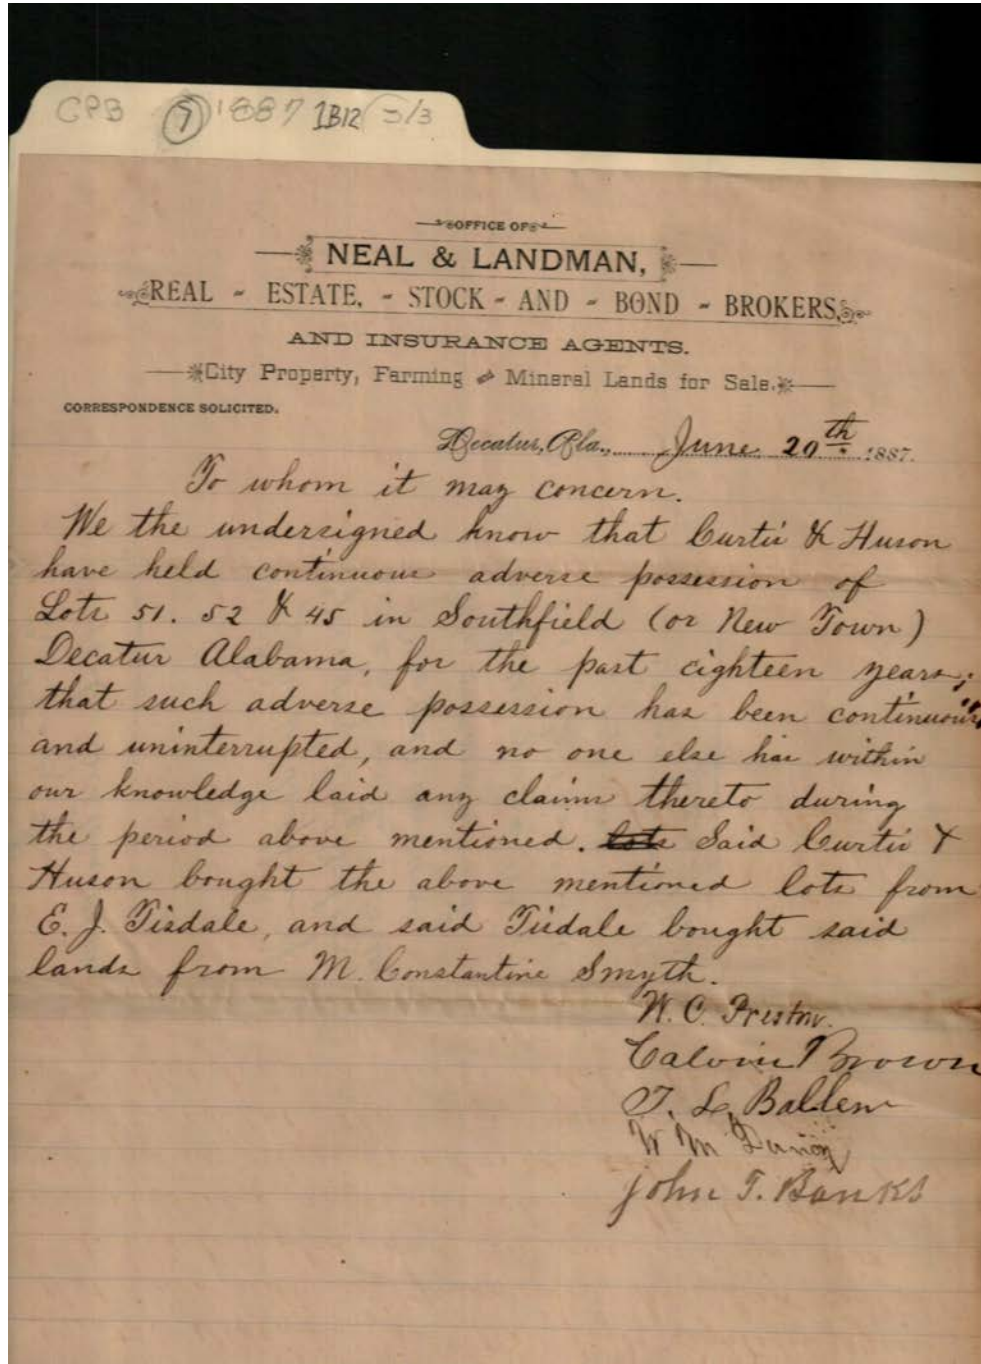 CPB 7 1887 1B12 3/3
OFFICE OF
NEAL & LANDMAN,
REAL - ESTATE, - STOCK - AND - BOND - BROKERS,
AND INSURANCE AGENTS.
City Property, Farming and Mineral Lands for Sale.
CORRESPONDENCE SOLICITED.
Decatur, Ala., June 20th 1887.
To whom it may concern.
We the undersigned know that Curtis & Huson
have held continuous adverse possession of
Lots 51. 52 & 45 in Southfield (or New Town)
Decatur Alabama, for the past eighteen years;
that such adverse possession has been continuous,
and uninterrupted, and no one else has within
our knowledge laid any claim thereto during
the period above mentioned. lots Said Curtis &
Huson bought the above mentioned lots from
E. J. Tisdale, and said Tisdale bought said
lands from M. Constantine Smyth.
W. C. Preston.
Calvin Brown
T. L. Ballen
W M
John T. Banks